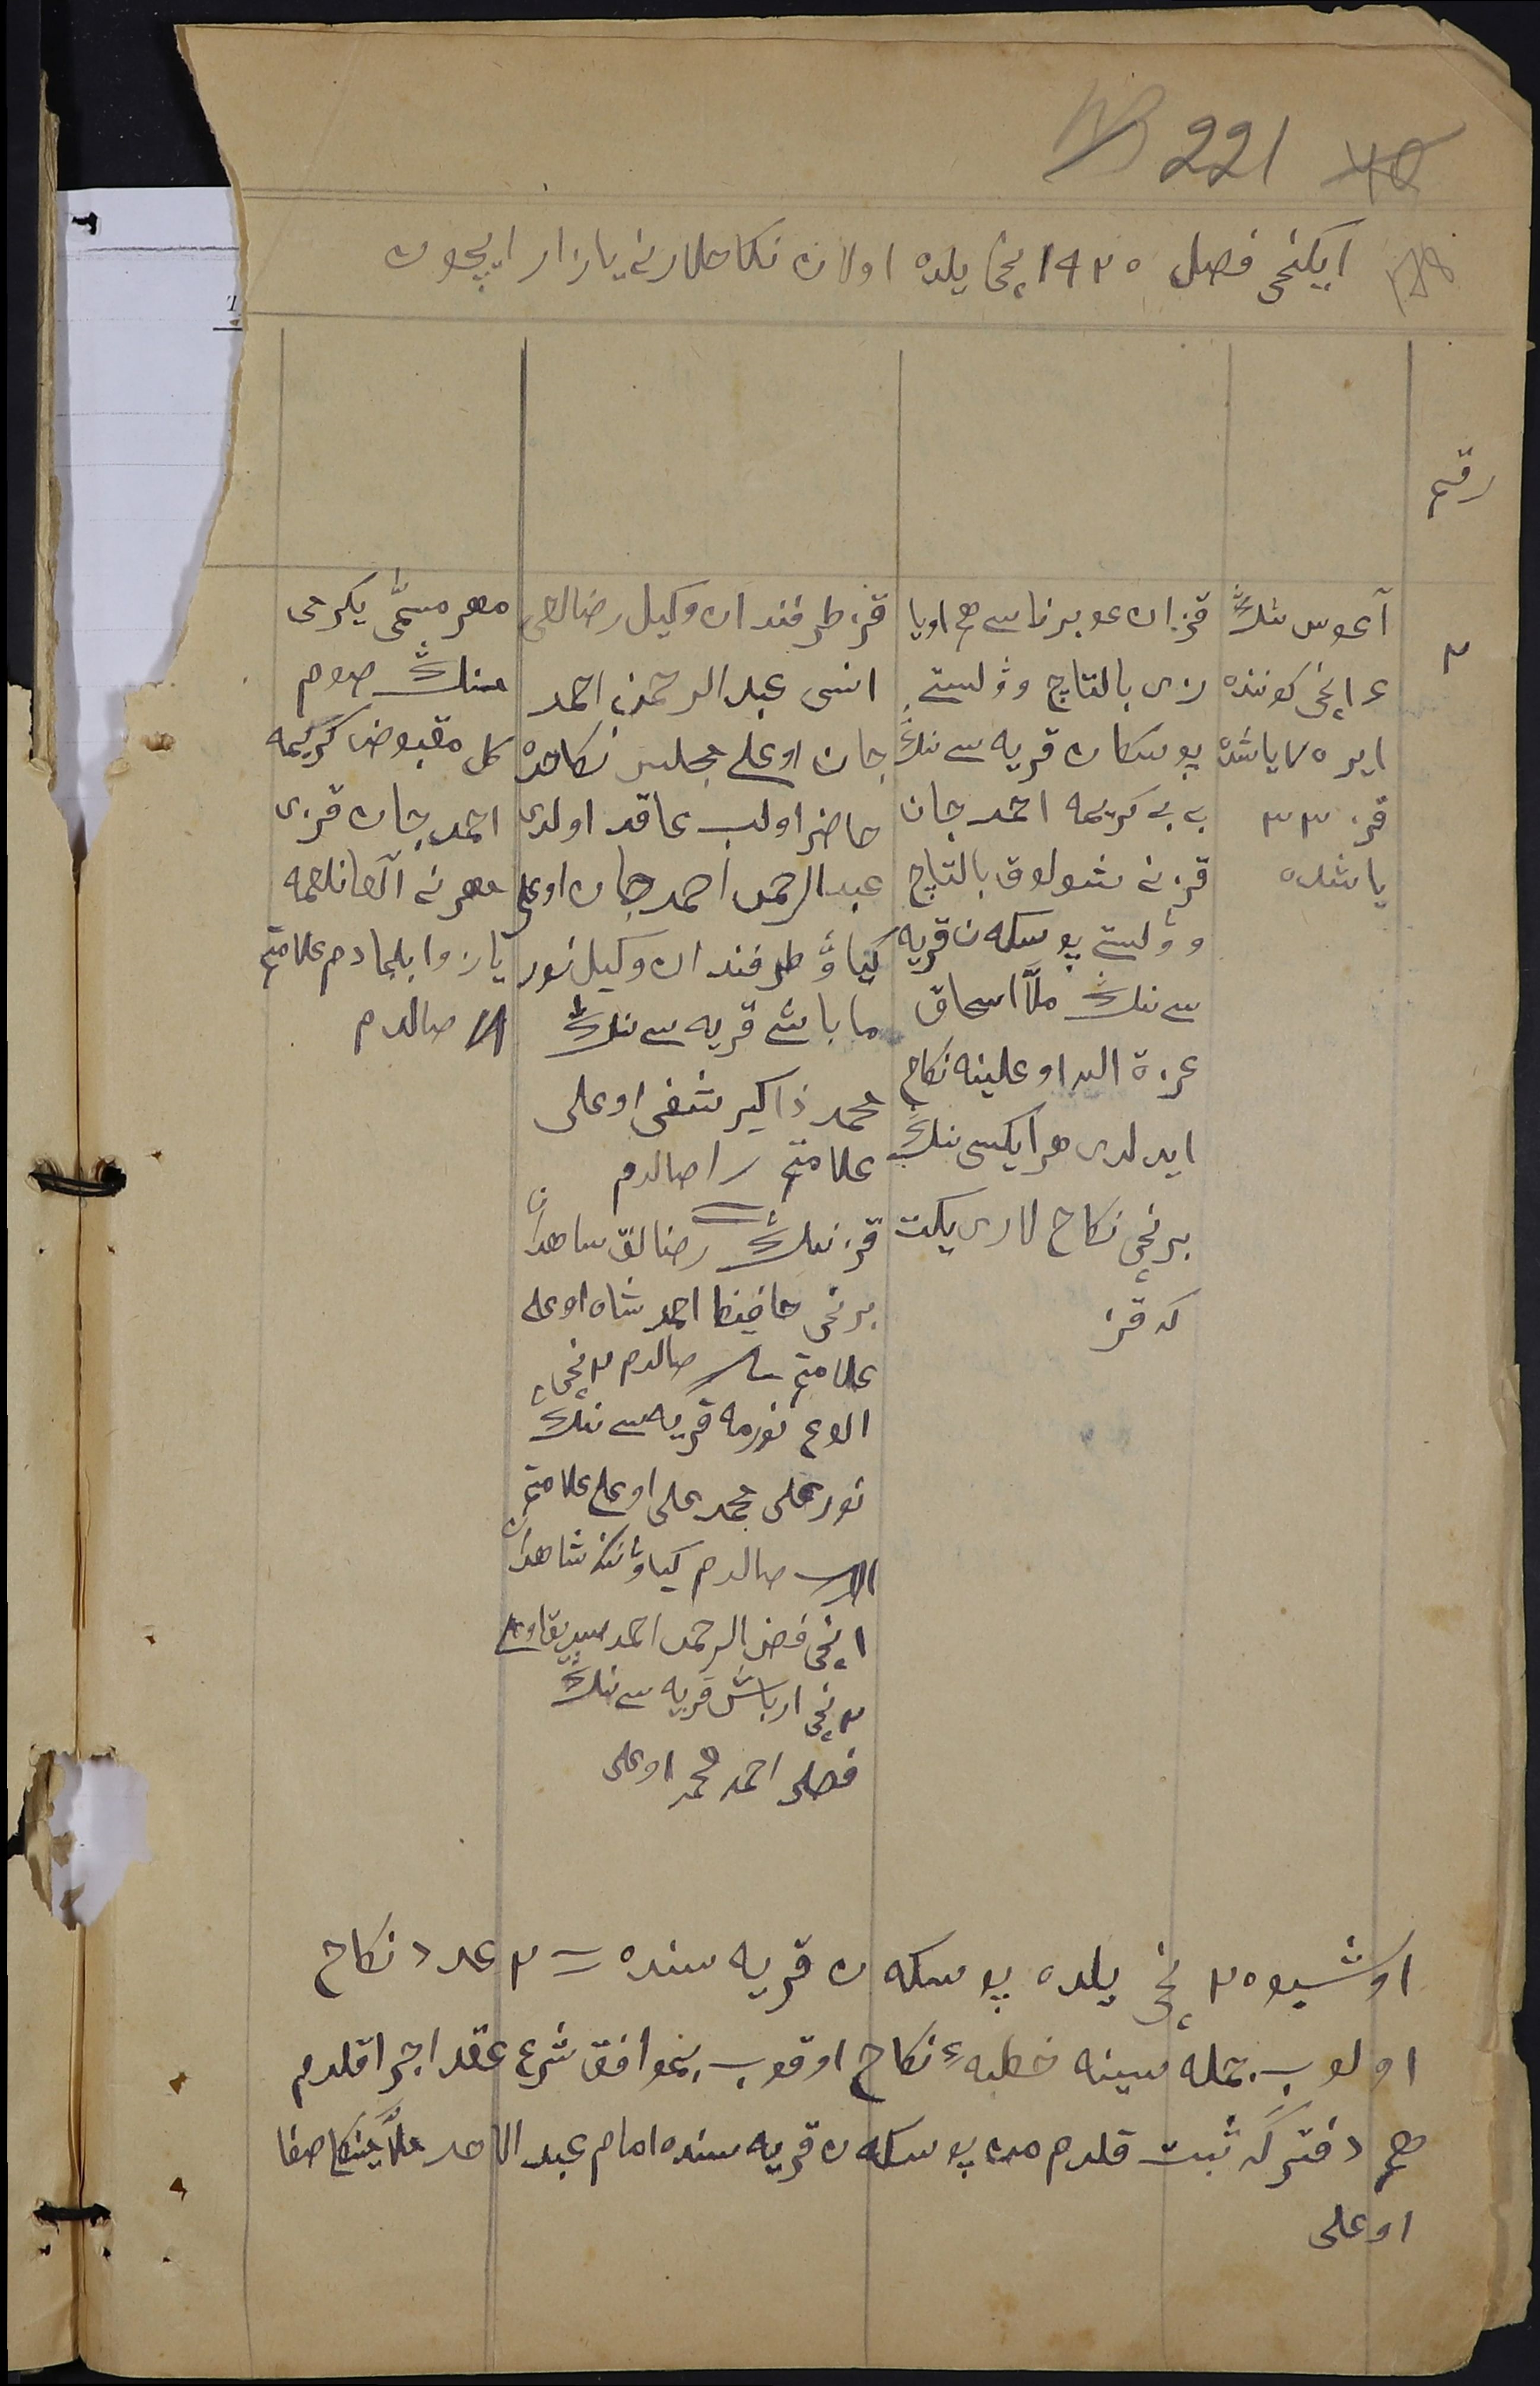 221 40
ایکنچی فصل ۱۹۲۰ نچی یلده اولان نکاحلارنی یازار ایچون
رقم
۲
آغوس ننڭ
ع انچی کوننده
ایر ۷۵ یاشده
قز ۳۳
یاشده
قزان غوبرناسی هم اویا
زی بالتاچ وۋلستی
پوسکان قریه سی ننڭ
بی بی کریمه احمد جان
قزنی شولوق بالتاچ
وۋلستی پوسکه ن قریه
سی ننڭ ملّا اسحاق
عزة الله اوغلینه نکاح
ایدلدی هر ایکسی ننڭ
برنچی نکاح لاری یکت
که قز
قز طرفندان وکیل رضالغی
انسی عبد الرحمن احمد
جان اوغلی مجلس نکاحده
حاضر اولب عاقد اولدی
عبد الرحمن احمد جان اوغلی
کیاۋ طرفندان وکیل نور
ما باشی قریه سی ننڭ
محمد ذاکیر شفی اوغلی
علامتم صالدم
قز ننڭ رضالق شاهدان
برنچی حافیظ احمد شاه اوغلی
علامتم صالدم ۲ نچی
الوغ نورمه قریه سی ننڭ
نور علی محمد علی اوغلی علامتم
صالدم کیاۋ ننڭ شاهدان
۱ نچی فضل الرحمن احمد اوغلی
۲ نچی ارباش قریه سی ننڭ
فضلی احمد محمد اوغلی
مهر مسمّی یکرمی
مینڭ صوم
کل مقبوض کریمه
احمد جان قزی
مهرنی آلغانلغمه
یازو ا بلمادم علامتم
صالدم
اوشبو ۲۰ نچی یلده پوسکه ن قریه سنده = ۲ عدد نکاح
اولوب جمله سینه خطبهٔ نکاح اوقوب بموافق شرع عقد اجرا قلدم
هم دفترکه ثبت قلدم من پوسکه ن قریه سنده امام عبد الاحد صفا
اوغلی